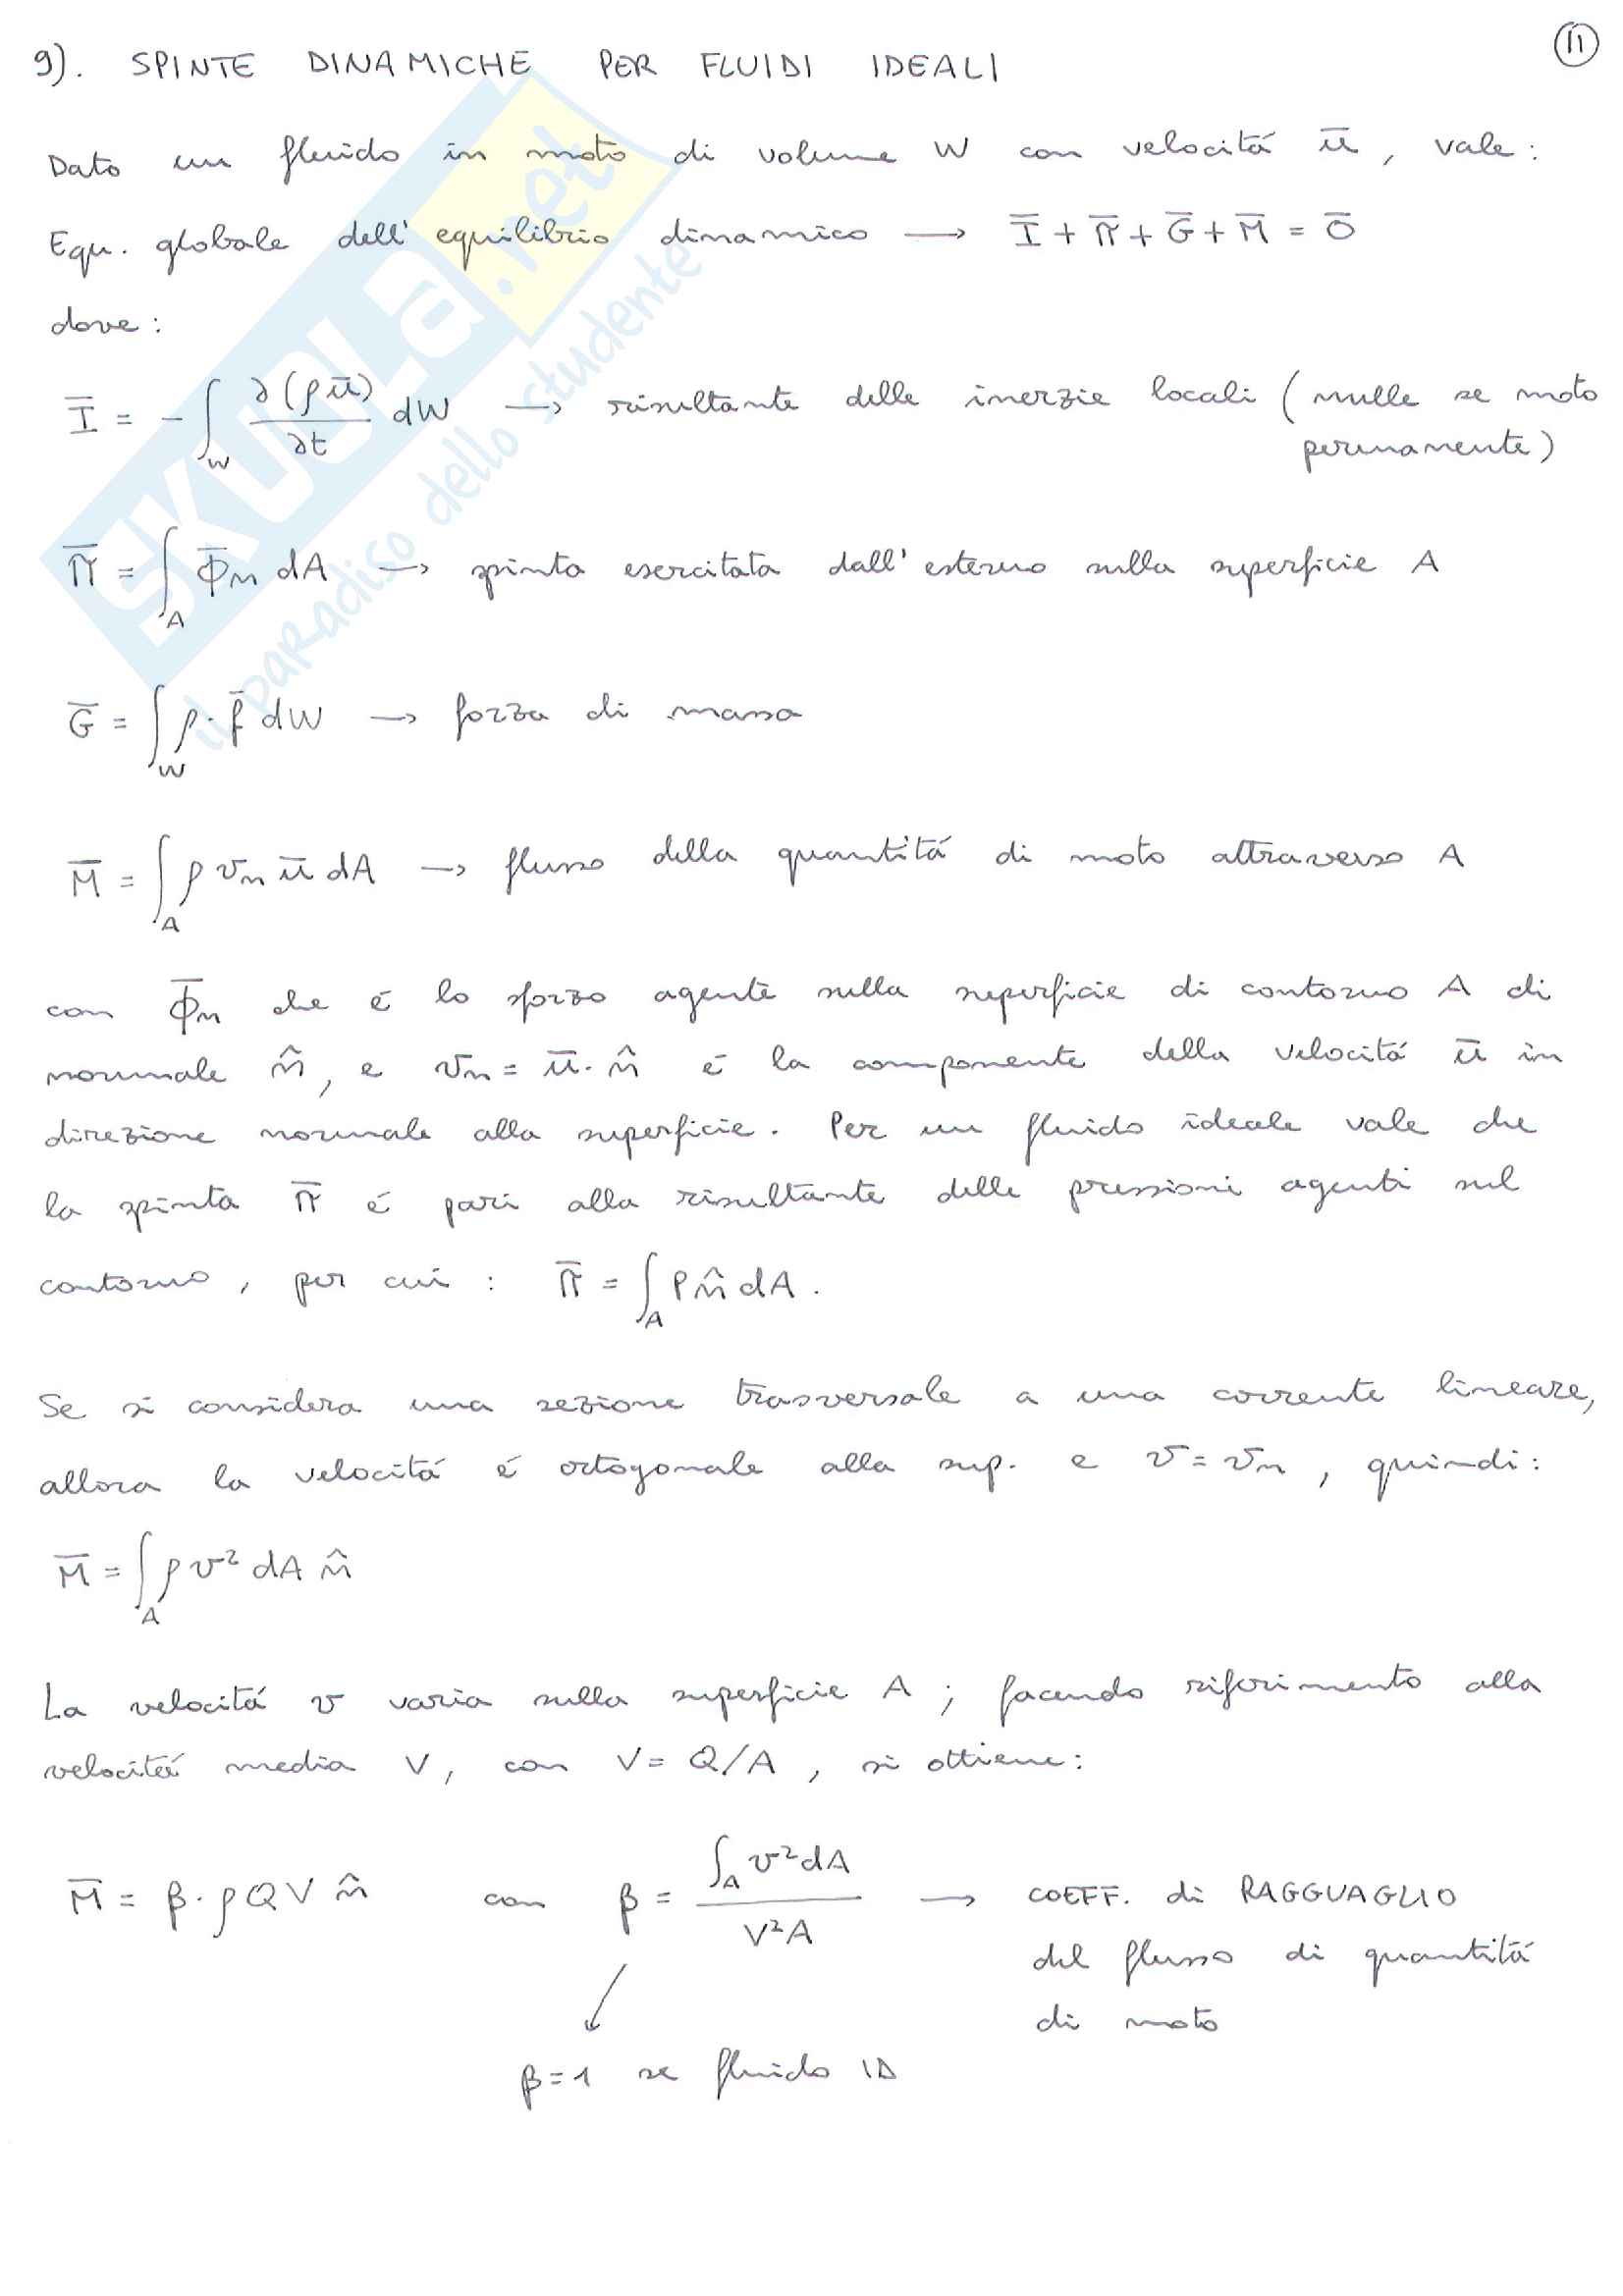 11
9). SPINTE DINAMICHE PER FLUIDI IDEALI
Dato un fluido in moto di volume W con velocitá ū, vale:
Equ. globale dell' equilibrio dinamico → Ī + Π̄ + Ḡ + M̄ = Ō
dove:
Ī = - ∫_W ∂(ρū)/∂t dW → risultante delle inerzie locali (nulle se moto
permanente)
Π̄ = ∫_A Φ̄n dA → spinta esercitata dall' esterno sulla superficie A
Ḡ = ∫_W ρ · f̄ dW → forza di massa
M̄ = ∫_A ρ vn ū dA → flusso della quantitá di moto attraverso A
con Φ̄n che é lo sforzo agente sulla superficie di contorno A di
normale n̂, e vn = ū · n̂ é la componente della velocitá ū in
direzione normale alla superficie. Per un fluido ideale vale che
la spinta Π̄ é pari alla risultante delle pressioni agenti sul
contorno, per cui : Π̄ = ∫_A P n̂ dA.
Se si considera una sezione trasversale a una corrente lineare,
allora la velocitá é ortogonale alla sup. e v = vn, quindi:
M̄ = ∫_A ρ v² dA n̂
La velocitá v varia sulla superficie A ; facendo riferimento alla
velocitá media V, con V = Q/A , si ottiene:
M̄ = β · ρ Q V n̂ con β = ∫_A v² dA / V²A → COEFF. di RAGGUAGLIO
del flusso di quantitá
di moto
β = 1 se fluido ID
SKUOLA.net
il paradiso dello studente